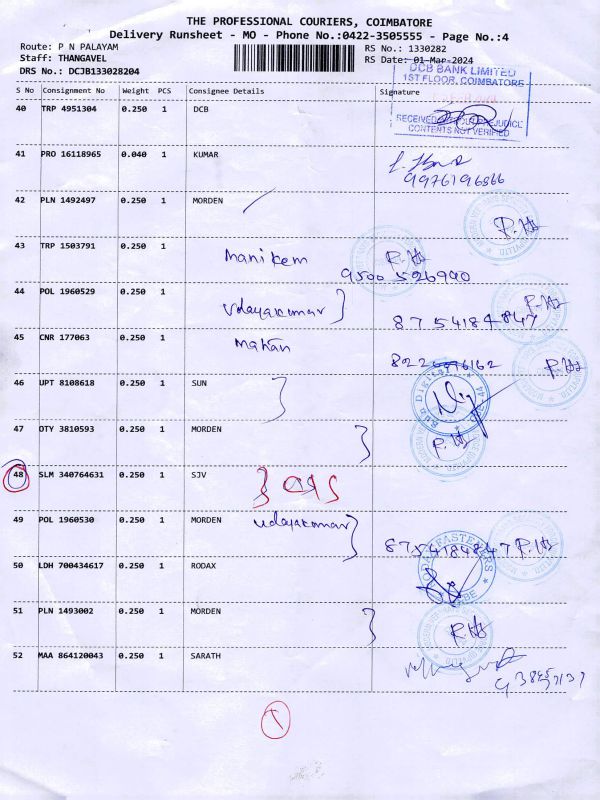 THE PROFESSIONAL COURIERS, COIMBATORE
Delivery Runsheet - MO - Phone No.:0422-3505555 - Page No.:4
Route: P N PALAYAM RS No.: 1330282
Staff: THANGAVEL RS Date: 01-Mar-2024
DRS No.: DCJB133028204
DCB BANK LIMITED
1ST FLOOR, COIMBATORE
S No Consignment No Weight PCS Consignee Details Signature
40 TRP 4951304 0.250 1 DCB
RECEIVED
CONTENTS NOT VERIFIED
41 PRO 16118965 0.040 1 KUMAR
9976196866
42 PLN 1492497 0.250 1 MORDEN
43 TRP 1503791 0.250 1 MORDEN
manikem
9500526990
44 POL 1960529 0.250 1
Udayakumar 8754184847
45 CNR 177063 0.250 1
mahan
46 UPT 8108618 0.250 1 SUN
Sun Digital
47 OTY 3810593 0.250 1 MORDEN
48 SLM 340764631 0.250 1 SJV
49 POL 1960530 0.250 1 MORDEN Udayakumar
8754184847
50 LDH 700434617 0.250 1 RODAX
51 PLN 1493002 0.250 1 MORDEN
52 MAA 864120043 0.250 1 SARATH
1